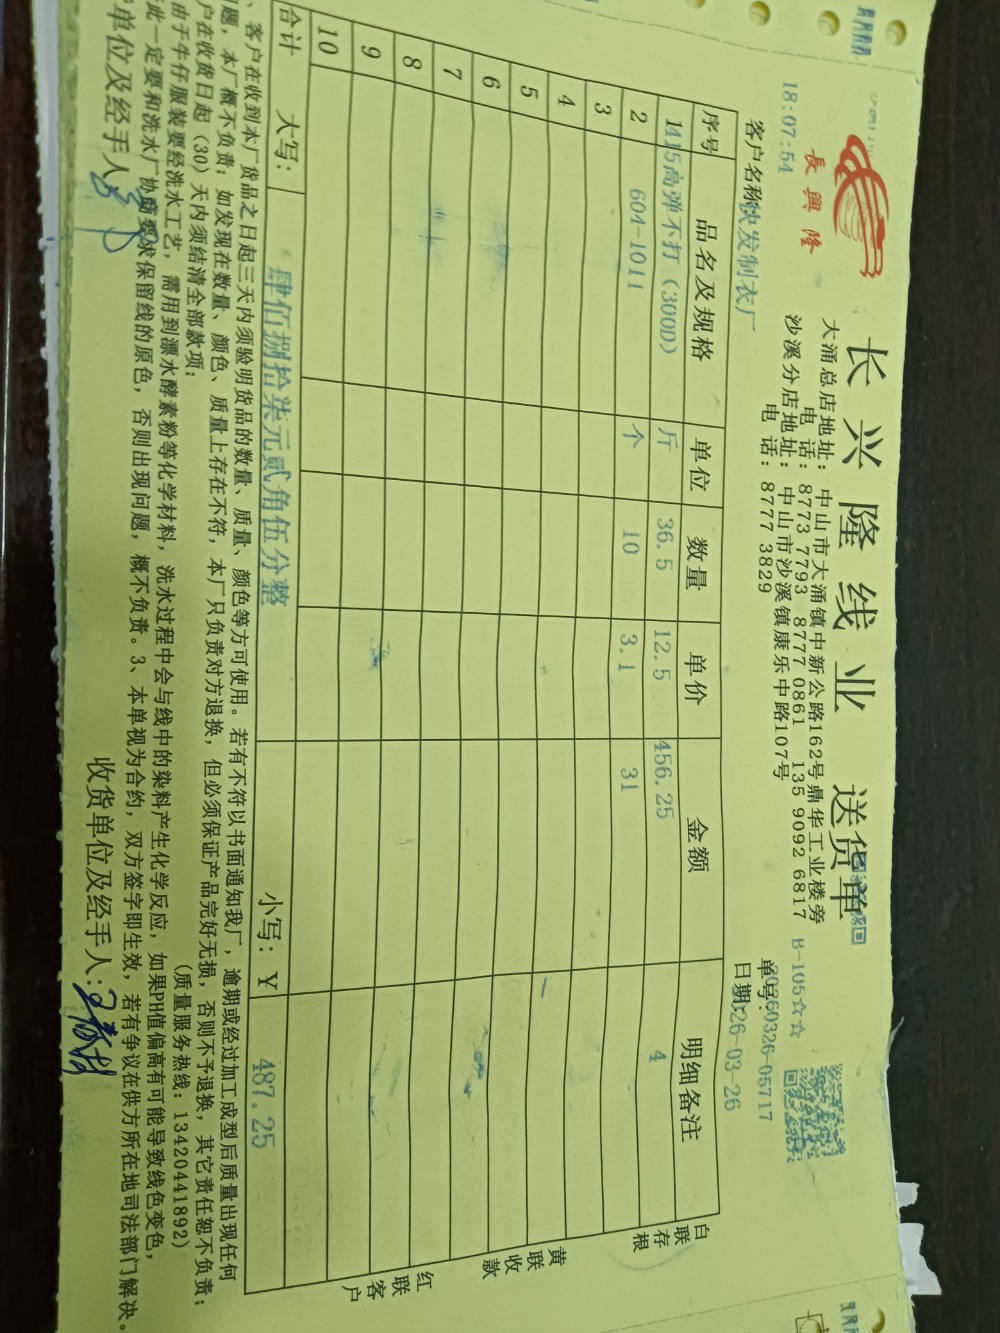 18:07:54
長興隆
长兴隆线业 送货单
大涌总店地址: 中山市大涌镇中新公路162号鼎华工业楼旁
电 话: 8773 7793 8777 0861 135 9092 6817
沙溪分店地址: 中山市沙溪镇康乐中路107号
电 话: 8777 3829
B-105☆☆
客户名称 快发制衣厂
单号: 20260326-05717
日期: 26-03-26
序号 品名及规格 单位 数量 单价 金额 明细备注
1 1415高弹不打(300D) 斤 36.5 12.5 456.25 4
2 604-1011 个 10 3.1 31
3
4
5
6
7
8
9
10
合计 大写: 肆佰捌拾柒元贰角伍分整 小写: ¥ 487.25
白联存根
黄联收款
红联客户
、客户在收到本厂货品之日起三天内须验明货品的数量、质量、颜色等方可使用。若有不符以书面通知我厂,逾期或经过加工成型后质量出现任何
问题,本厂概不负责;如发现在数量、颜色、质量上存在不符,本厂只负责对方退换,但必须保证产品完好无损,否则不予退换,其它责任恕不负责;
户在收货日起(30)天内须结清全部款项; (质量服务热线:13420441892)
由于牛仔服装要经洗水工艺,需用到漂水酵素粉等化学材料,洗水过程中会与线中的染料产生化学反应,如果PH值偏高有可能导致线色变色,
此一定要和洗水厂协商要求保留线的原色,否则出现问题,概不负责。3、本单视为合约,双方签字即生效,若有争议在供方所在地司法部门解决。
单位及经手人: 收货单位及经手人: